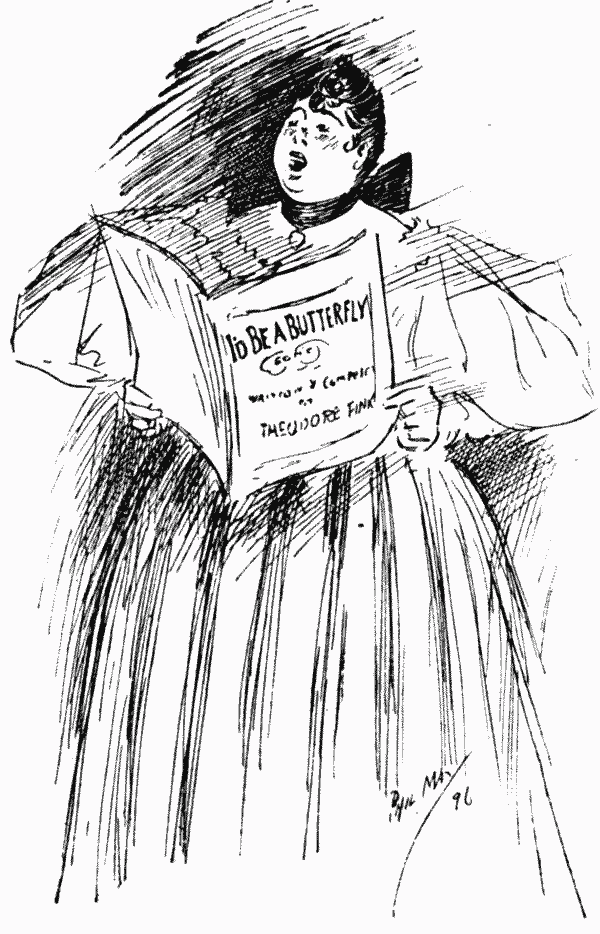 I'D BE A BUTTERFLY
SONG
WRITTEN & COMPOSED
BY
THEODORE FINK
96